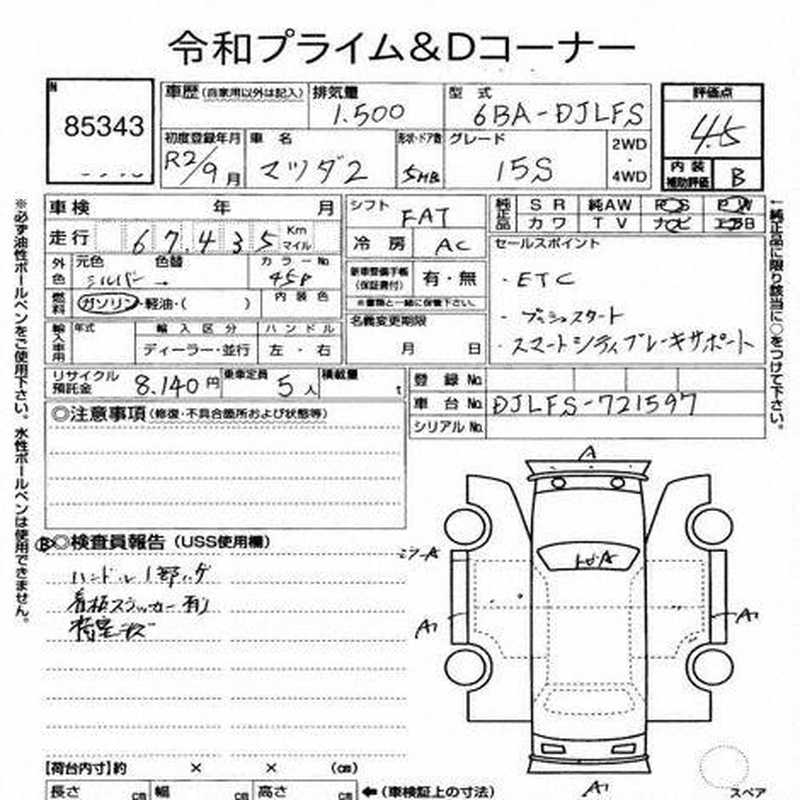 令和プライム&Dコーナー
N
85343
車歴(自家用以外は記入)
排気量
1.500
型 式
6BA-DJLFS
評価点
4.5
初度登録年月
R2/9月
車 名
マツダ2
形状・ドア数
5HB
グレード
15S
2WD
・
4WD
内 装
補助評価
B
車検 年 月
走行 67,435 Km マイル
シフト
FAT
冷 房
AC
純正品
SR 純AW PS PW
カワ TV ナビ エアB
外色
元色 色替
シルバー →
カラーNo
45P
新車整備手帳
(保証書付)
有・無
※書類と一緒に保管下さい。
セールスポイント
・ETC
・プッシュスタート
・スマートシティブレーキサポート
燃料
ガソリン・軽油・( )
内 装 色
名義変更期限
月 日
輸入車用
年式
輸 入 区 分
ディーラー・並行
ハ ン ド ル
左・右
リサイクル
預託金
8.140円
乗車定員
5人
積載量
t
登 録 No.
車 台 No.
DJLFS-721597
シリアル No.
◎注意事項(修復・不具合箇所および状態等)
※必ず油性ボールペンをご使用下さい。水性ボールペンは使用できません。
↑純正品に限り該当に○をつけて下さい。
B◎検査員報告(USS使用欄)
ハンドル1部ハゲ
看板ステッカー有り
背室キズ
A
ミラーA
トビA
A1
A1
A1
【荷台内寸】約 × × (cm)
長さ cm 幅 cm 高さ cm ←(車検証上の寸法)
スペア